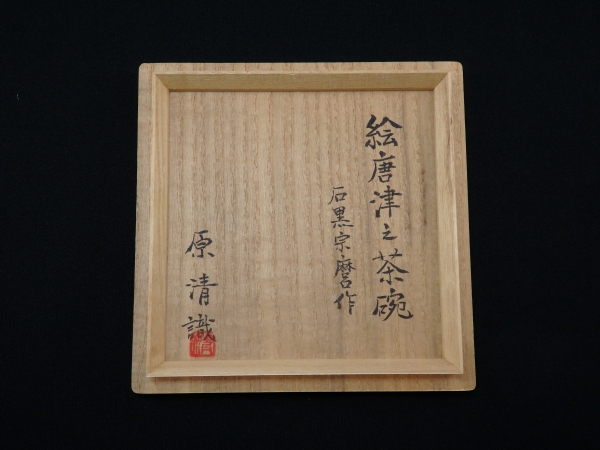 絵唐津之茶碗
石黒宗麿作
原清識